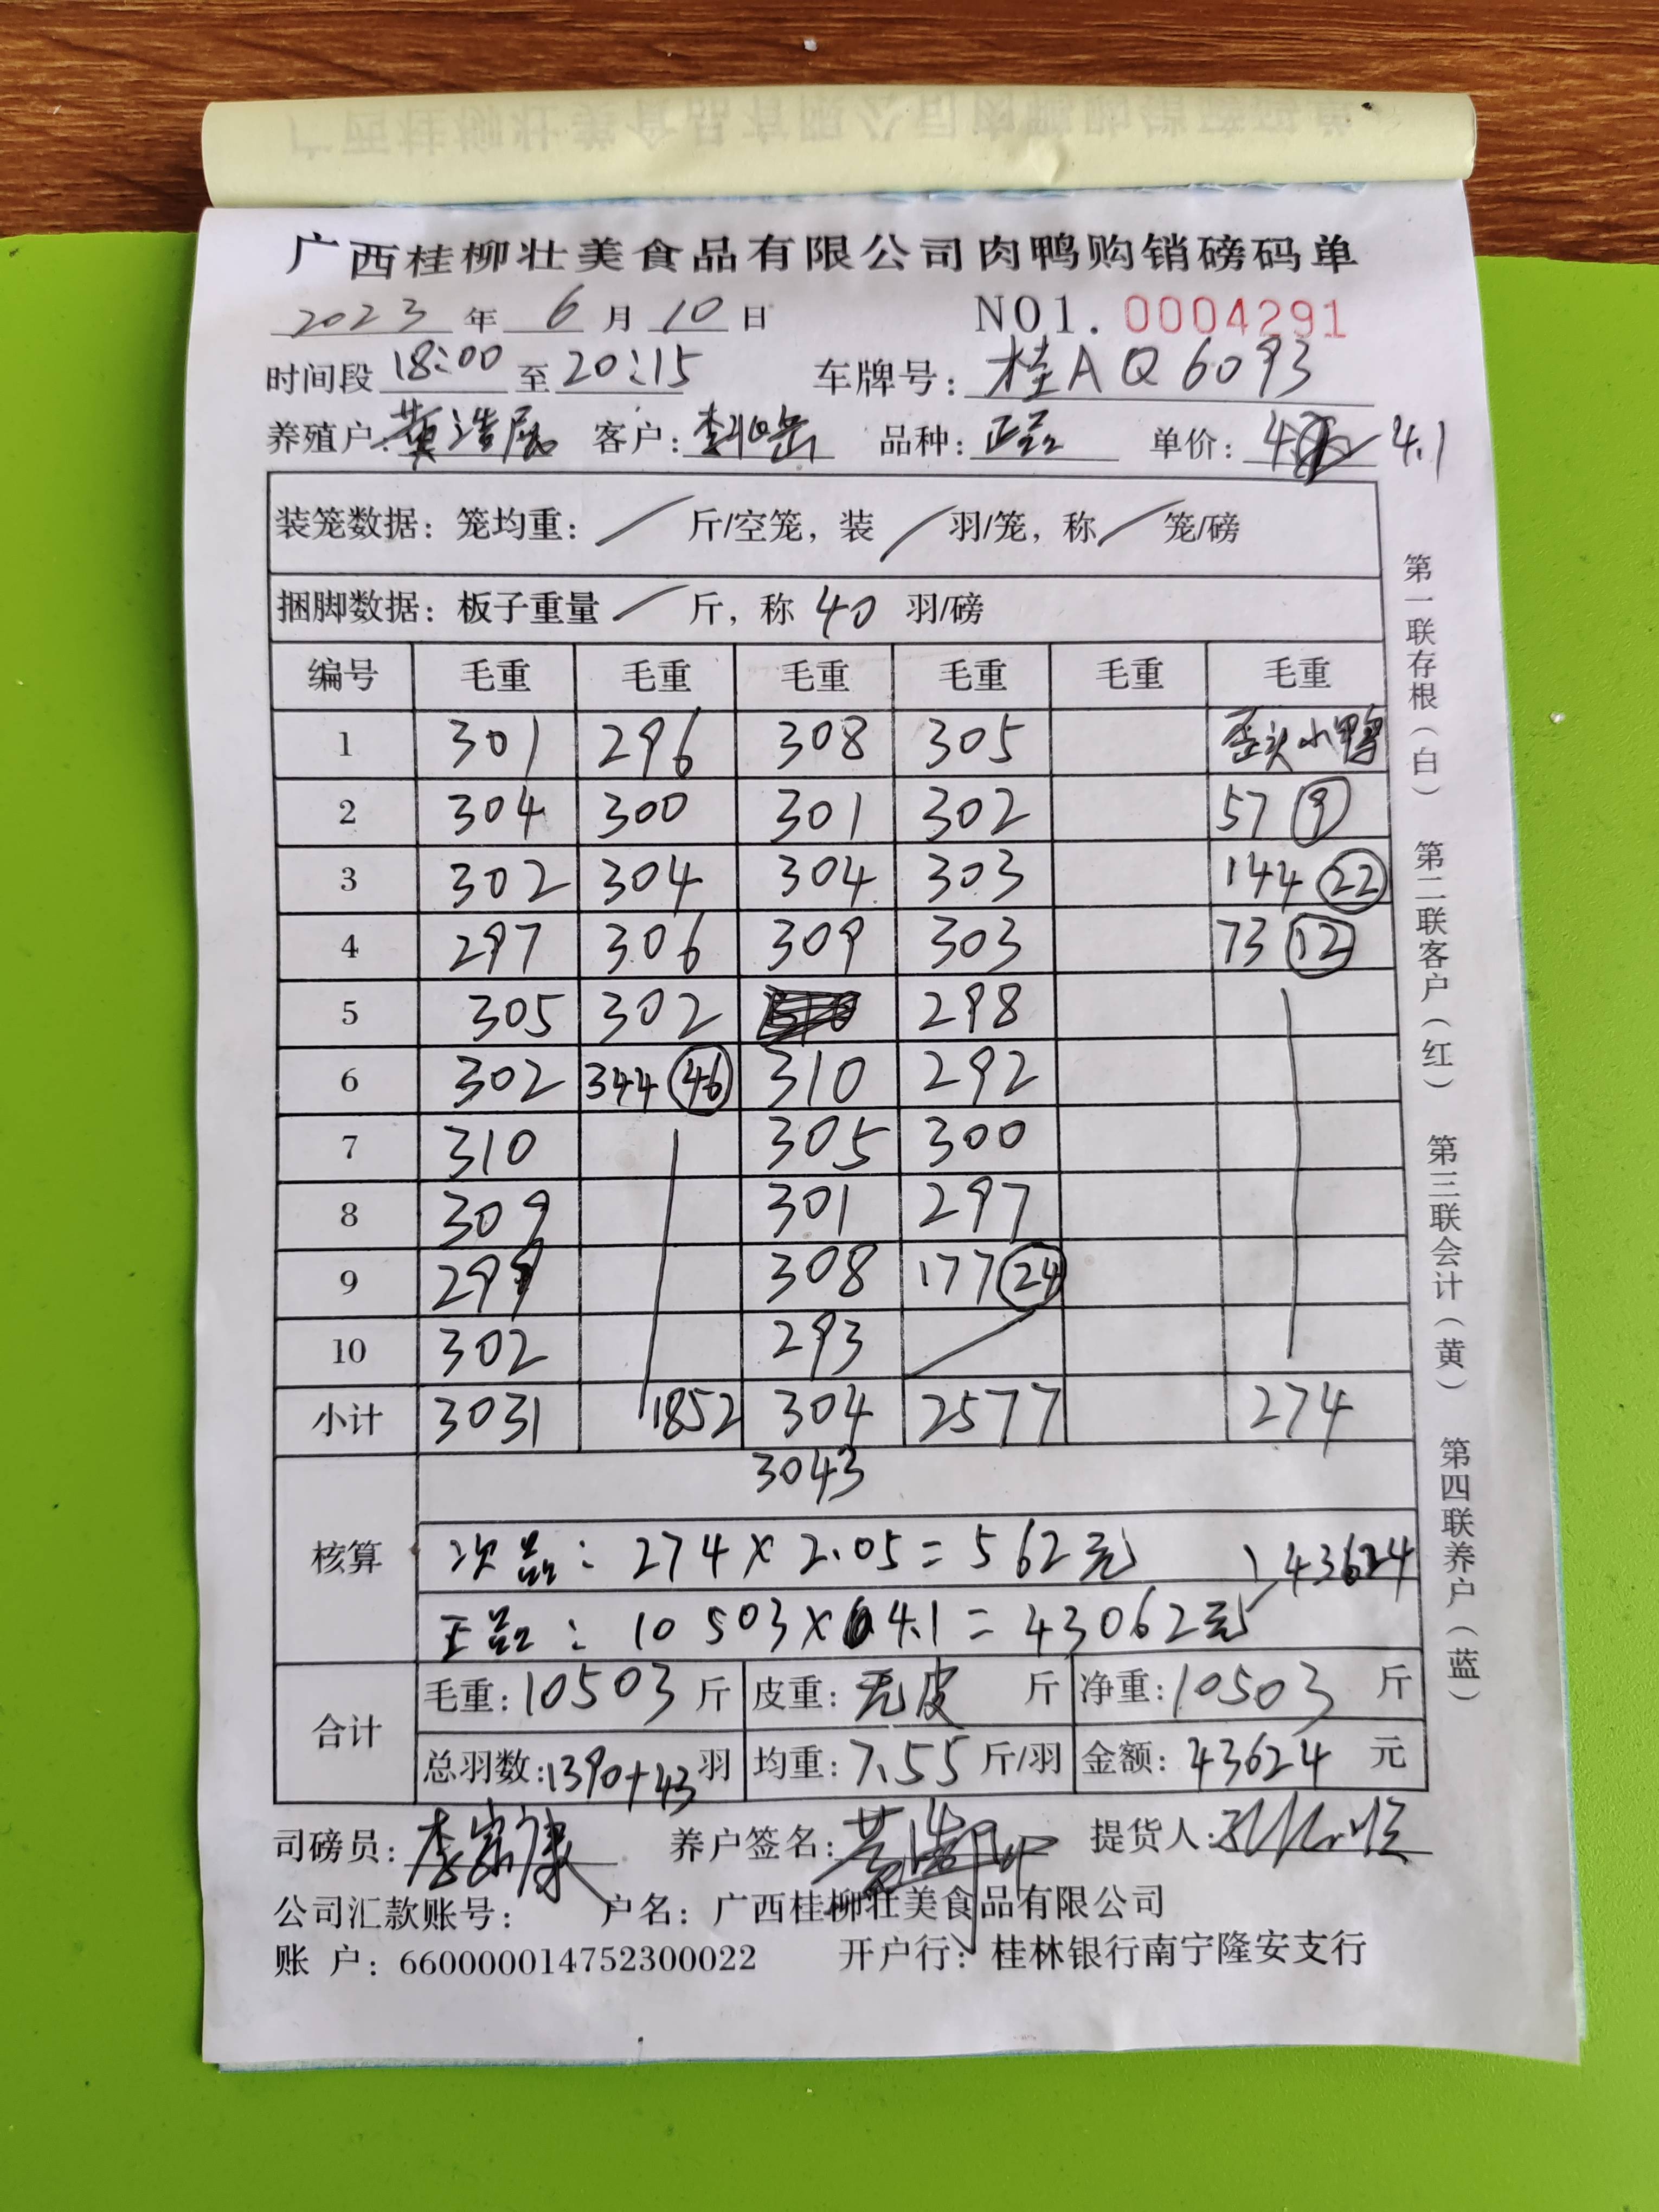 广西桂柳壮美食品有限公司肉鸭购销磅码单
2023 年 6 月 10 日 NO1. 0004291
时间段 18:00 至 20:15 车牌号: 桂A Q6093
养殖户: 黄浩展 客户: 品种: 正品 单价: 4.1
装笼数据: 笼均重: 斤/空笼, 装 羽/笼, 称 笼/磅
捆脚数据: 板子重量 斤, 称 40 羽/磅
编号 毛重 毛重 毛重 毛重 毛重 毛重
1 301 296 308 305 歪头小鸭
2 304 300 301 302 57 9
3 302 304 304 303 144 22
4 297 306 309 303 73 12
5 305 302 298
6 302 344 46 310 292
7 310 305 300
8 309 301 297
9 299 308 177 24
10 302 293
小计 3031 1852 304 2577 274
3043
核算
次品: 274×2.05=562元 43624
正品: 10503×4.1=43062元
合计
毛重: 10503 斤 皮重: 无皮 斤 净重: 10503 斤
总羽数: 1390+43 羽 均重: 7.55 斤/羽 金额: 43624 元
司磅员: 李富康 养户签名: 提货人:
公司汇款账号: 户名: 广西桂柳壮美食品有限公司
账 户: 660000014752300022 开户行: 桂林银行南宁隆安支行
第一联存根(白) 第二联客户(红) 第三联会计(黄) 第四联养户(蓝)